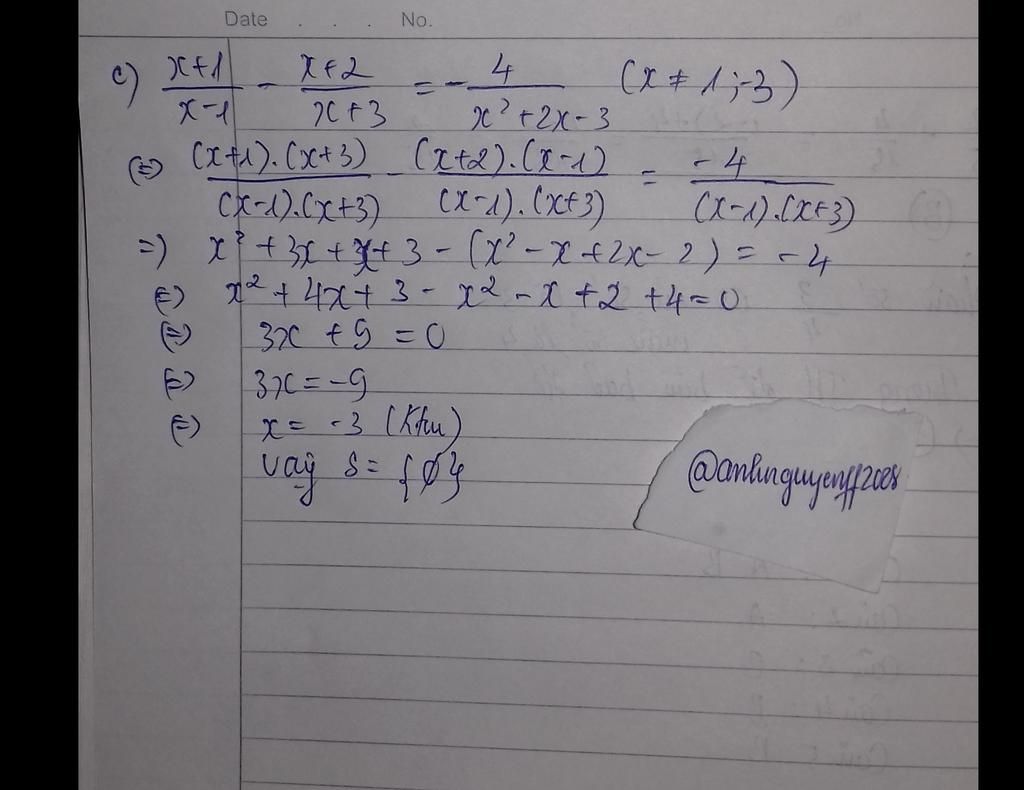 Date . . . No.
c) \frac{x+1}{x-1} - \frac{x+2}{x+3} = - \frac{4}{x²+2x-3} (x ≠ 1;-3)
(=) \frac{(x+1).(x+3)}{(x-1).(x+3)} - \frac{(x+2).(x-1)}{(x-1).(x+3)} = \frac{-4}{(x-1).(x+3)}
=) x² + 3x + x + 3 - (x² - x + 2x - 2) = -4
(=) x² + 4x + 3 - x² - x + 2 + 4 = 0
(=) 3x + 9 = 0
(=) 3x = -9
(=) x = -3 (Ktm)
vậy S = {∅}
@anhnguyenff2008